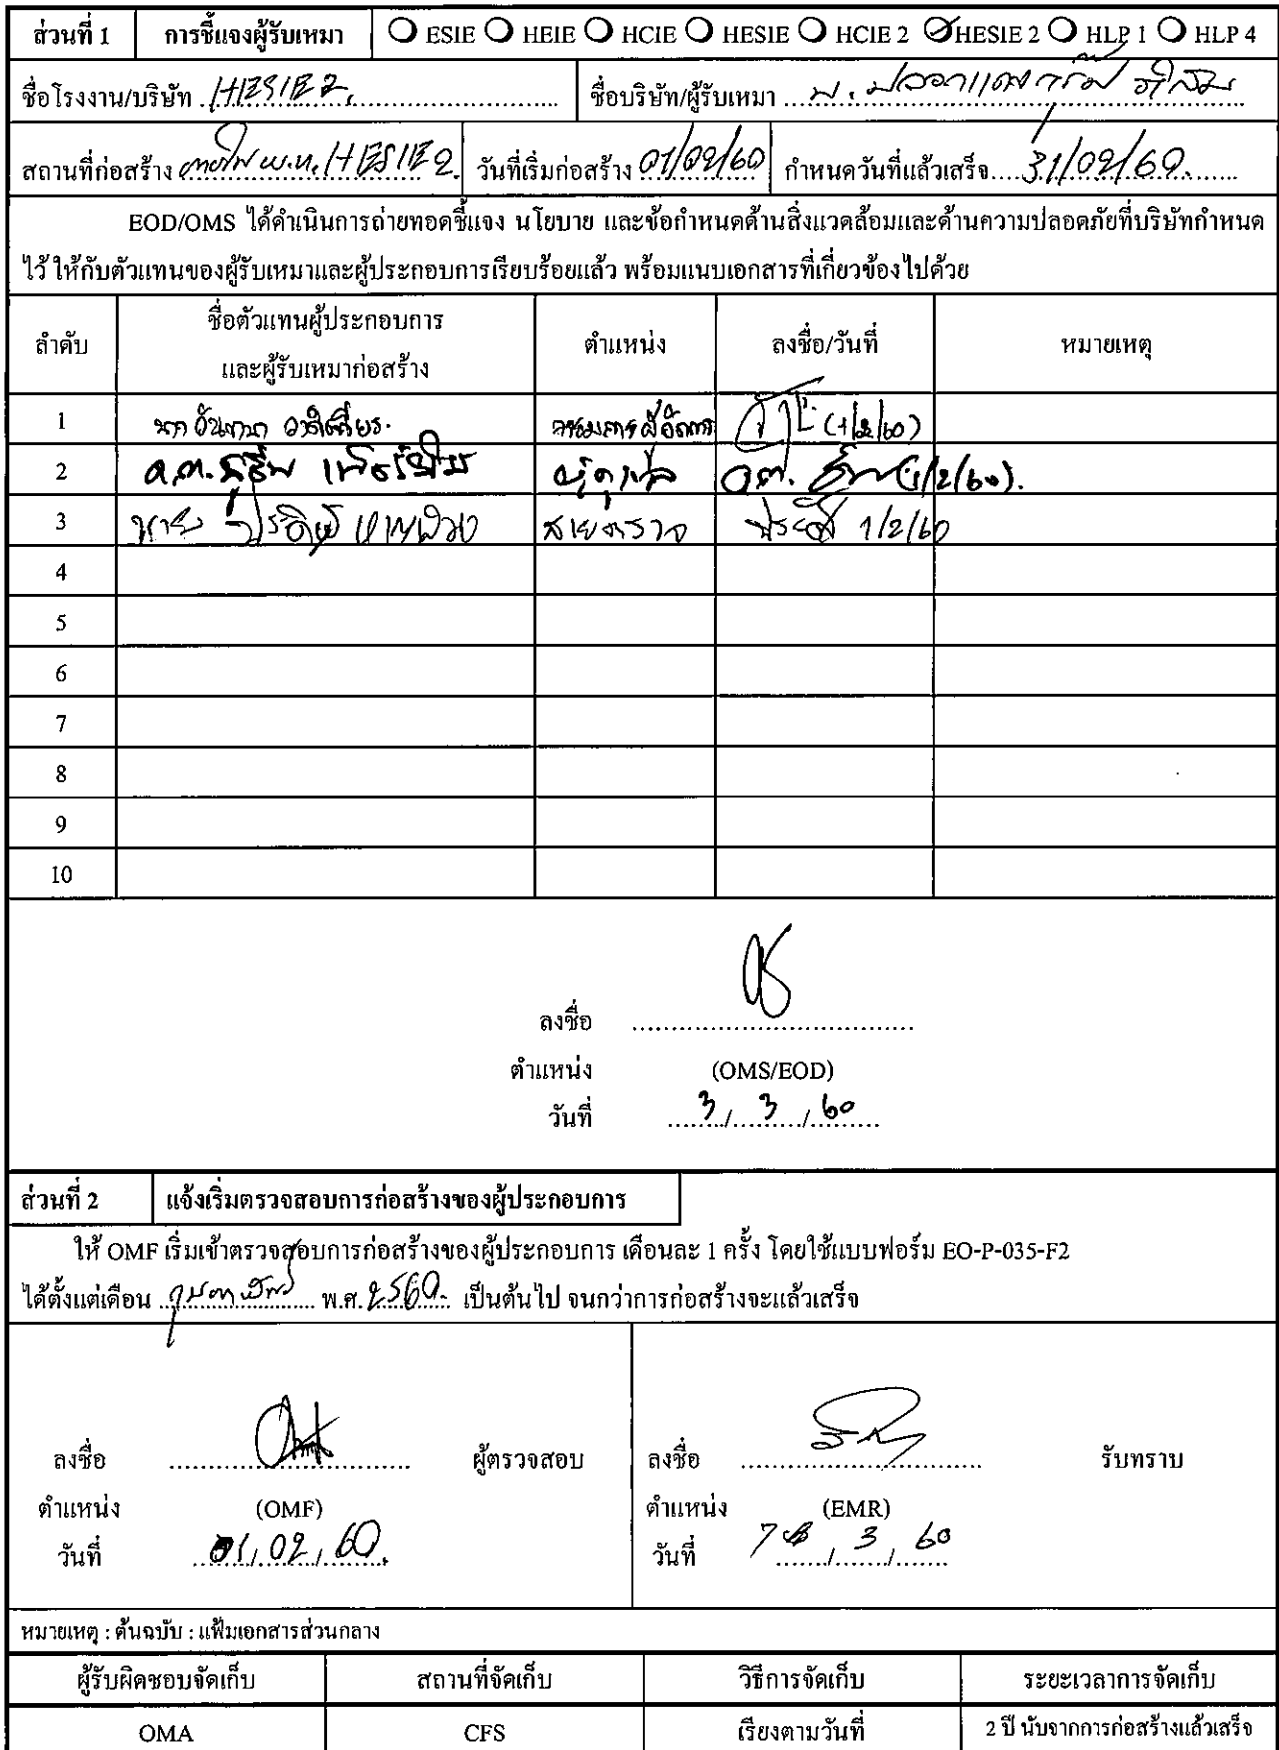 ส่วนที่ 1 การชี้แจงผู้รับเหมา ESIE HEIE HCIE HESIE HCIE 2 HESIE 2 HLP 1 HLP 4
ชื่อโรงงาน/บริษัท HESIE 2. ชื่อบริษัท/ผู้รับเหมา
สถานที่ก่อสร้าง HESIE 2. วันที่เริ่มก่อสร้าง 01/02/60 กำหนดวันที่แล้วเสร็จ 31/02/60.
EOD/OMS ได้ดำเนินการถ่ายทอดชี้แจง นโยบาย และข้อกำหนดด้านสิ่งแวดล้อมและด้านความปลอดภัยที่บริษัทกำหนด
ไว้ ให้กับตัวแทนของผู้รับเหมาและผู้ประกอบการเรียบร้อยแล้ว พร้อมแนบเอกสารที่เกี่ยวข้องไปด้วย
ลำดับ ชื่อตัวแทนผู้ประกอบการ ตำแหน่ง ลงชื่อ/วันที่ หมายเหตุ
และผู้รับเหมาก่อสร้าง
1 (1/2/60)
2 (1/2/60).
3 นาย สายตรวจ 1/2/60
4
5
6
7
8
9
10
ลงชื่อ
ตำแหน่ง (OMS/EOD)
วันที่ 3 / 3 / 60
ส่วนที่ 2 แจ้งเริ่มตรวจสอบการก่อสร้างของผู้ประกอบการ
ให้ OMF เริ่มเข้าตรวจสอบการก่อสร้างของผู้ประกอบการ เดือนละ 1 ครั้ง โดยใช้แบบฟอร์ม EO-P-035-F2
ได้ตั้งแต่เดือน กุมภาพันธ์ พ.ศ. 2560. เป็นต้นไป จนกว่าการก่อสร้างจะแล้วเสร็จ
ลงชื่อ ผู้ตรวจสอบ ลงชื่อ รับทราบ
ตำแหน่ง (OMF) ตำแหน่ง (EMR)
วันที่ 01 / 02 / 60. วันที่ 7 / 3 / 60
หมายเหตุ : ต้นฉบับ : แฟ้มเอกสารส่วนกลาง
ผู้รับผิดชอบจัดเก็บ สถานที่จัดเก็บ วิธีการจัดเก็บ ระยะเวลาการจัดเก็บ
OMA CFS เรียงตามวันที่ 2 ปี นับจากการก่อสร้างแล้วเสร็จ